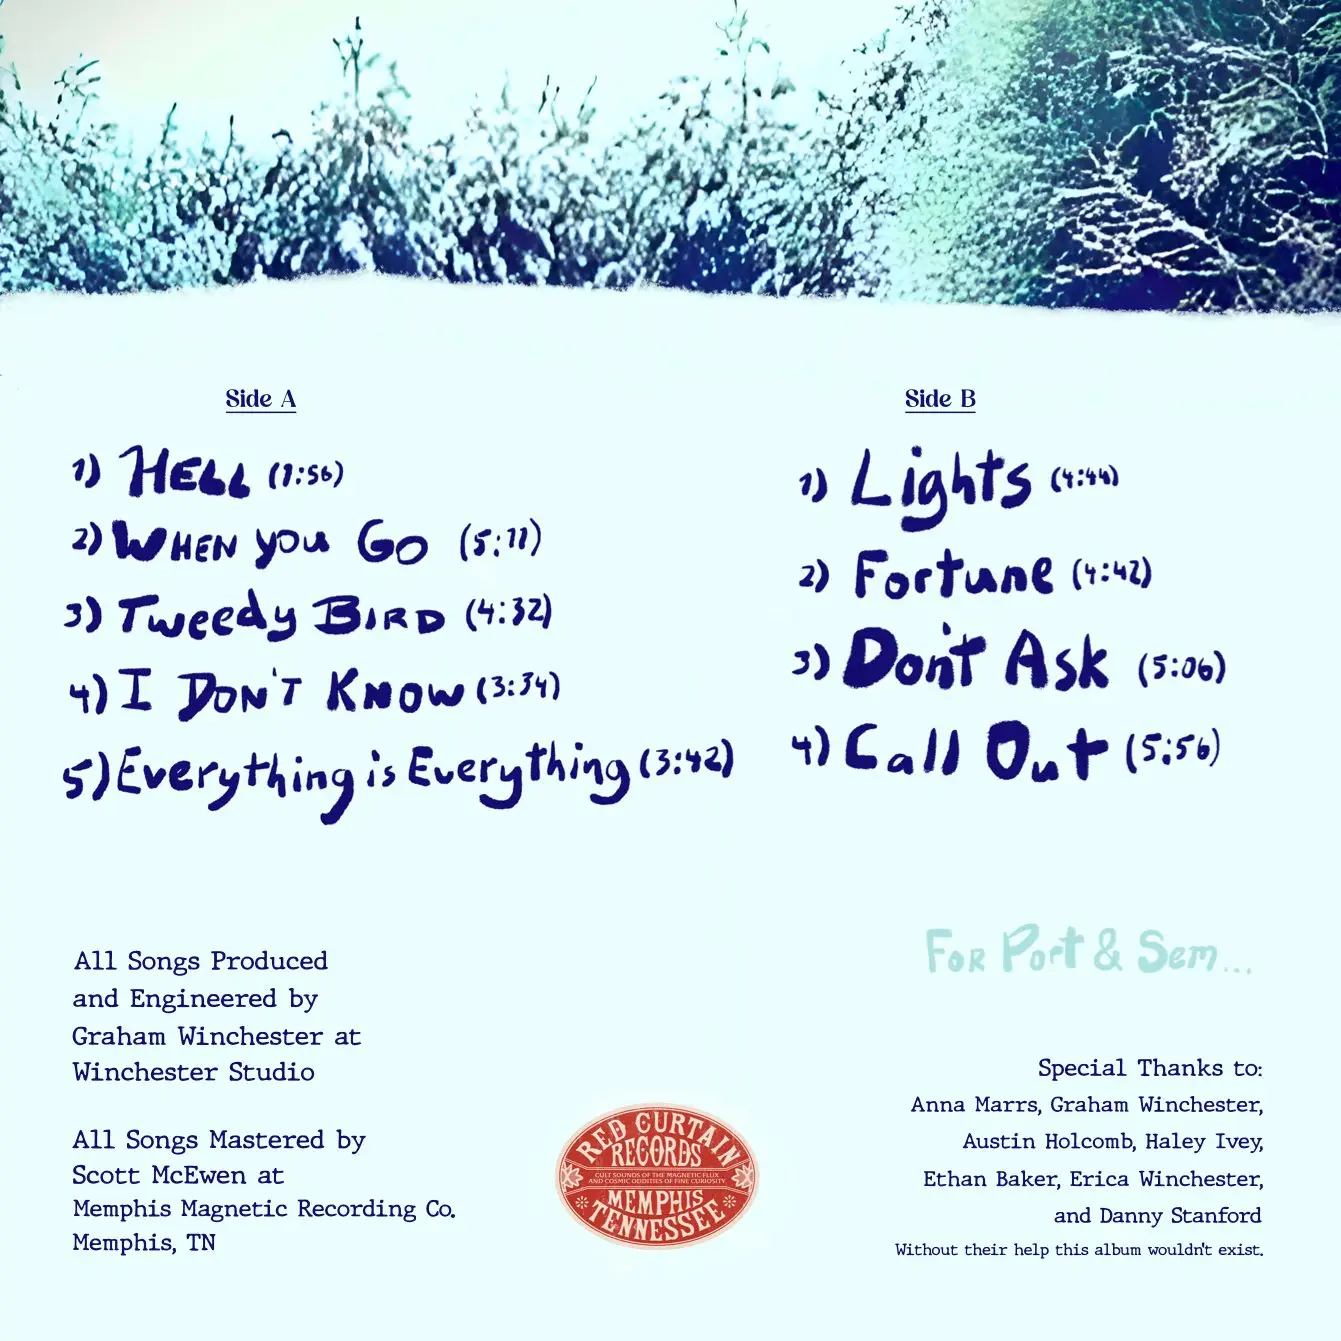 Side A
1) HELL (1:56)
2) WHEN YOU GO (5:11)
3) Tweedy BIRD (4:32)
4) I DON'T KNOW (3:34)
5) Everything is Everything (3:42)
Side B
1) Lights (4:44)
2) Fortune (4:42)
3) Don't Ask (5:06)
4) Call Out (5:56)
All Songs Produced
and Engineered by
Graham Winchester at
Winchester Studio
All Songs Mastered by
Scott McEwen at
Memphis Magnetic Recording Co.
Memphis, TN
RED CURTAIN
RECORDS
CULT SOUNDS OF THE MAGNETIC FLUX
AND COSMIC ODDITIES OF FINE CURIOSITY
MEMPHIS
TENNESSEE
FOR Port & Sem...
Special Thanks to:
Anna Marrs, Graham Winchester,
Austin Holcomb, Haley Ivey,
Ethan Baker, Erica Winchester,
and Danny Stanford
Without their help this album wouldn't exist.